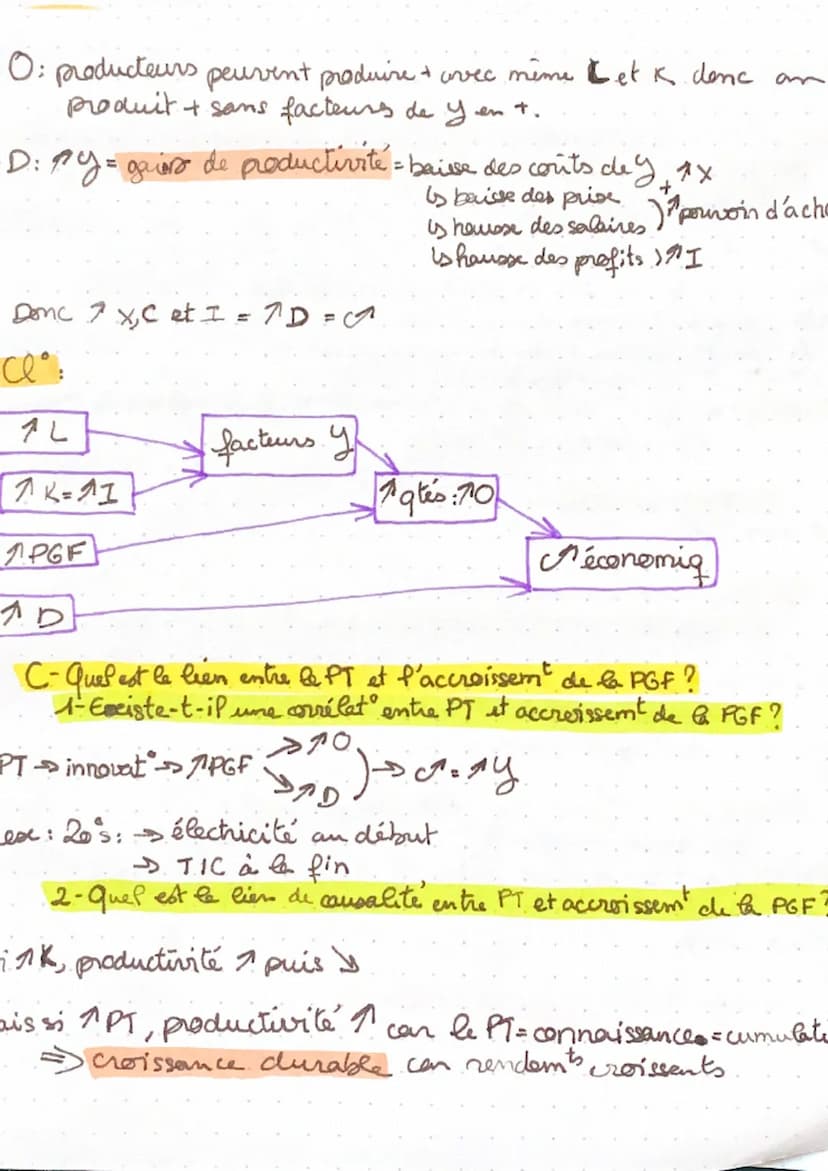 O: producteurs peuvent produire + avec même L et K donc on
produit + sans facteurs de Y en +.
D: ↗Y = gains de productivité = baisse des coûts de Y, ↗X
↳ baisse des prix
↳ hausse des salaires ) ↗ pouvoir d'acha
↳ hausse des profits ) ↗ I
Donc ↗ X, C et I = ↗D = C↗
Cl°:
↗ L
facteurs Y
↗ K = ↗I
↗qtés : ↗O
↗PGF
C↗ économiq
↗ D
C- Quel est le lien entre le PT et l'accroissemt de la PGF ?
1- Existe-t-il une corrélat° entre PT et accroissemt de la PGF ?
PT → innovat° → ↗PGF → ↗O ) → C↗ = ↗Y
↘ ↗D
ex : 20e s : → électricité au début
→ TIC à la fin
2- Quel est le lien de causalité entre PT et accroissemt de la PGF ?
i ↗K, productivité ↗ puis ↘
ais si ↗PT, productivité ↗ car le PT = connaissances = cumulati
⇒ croissance durable car rendemts croissents